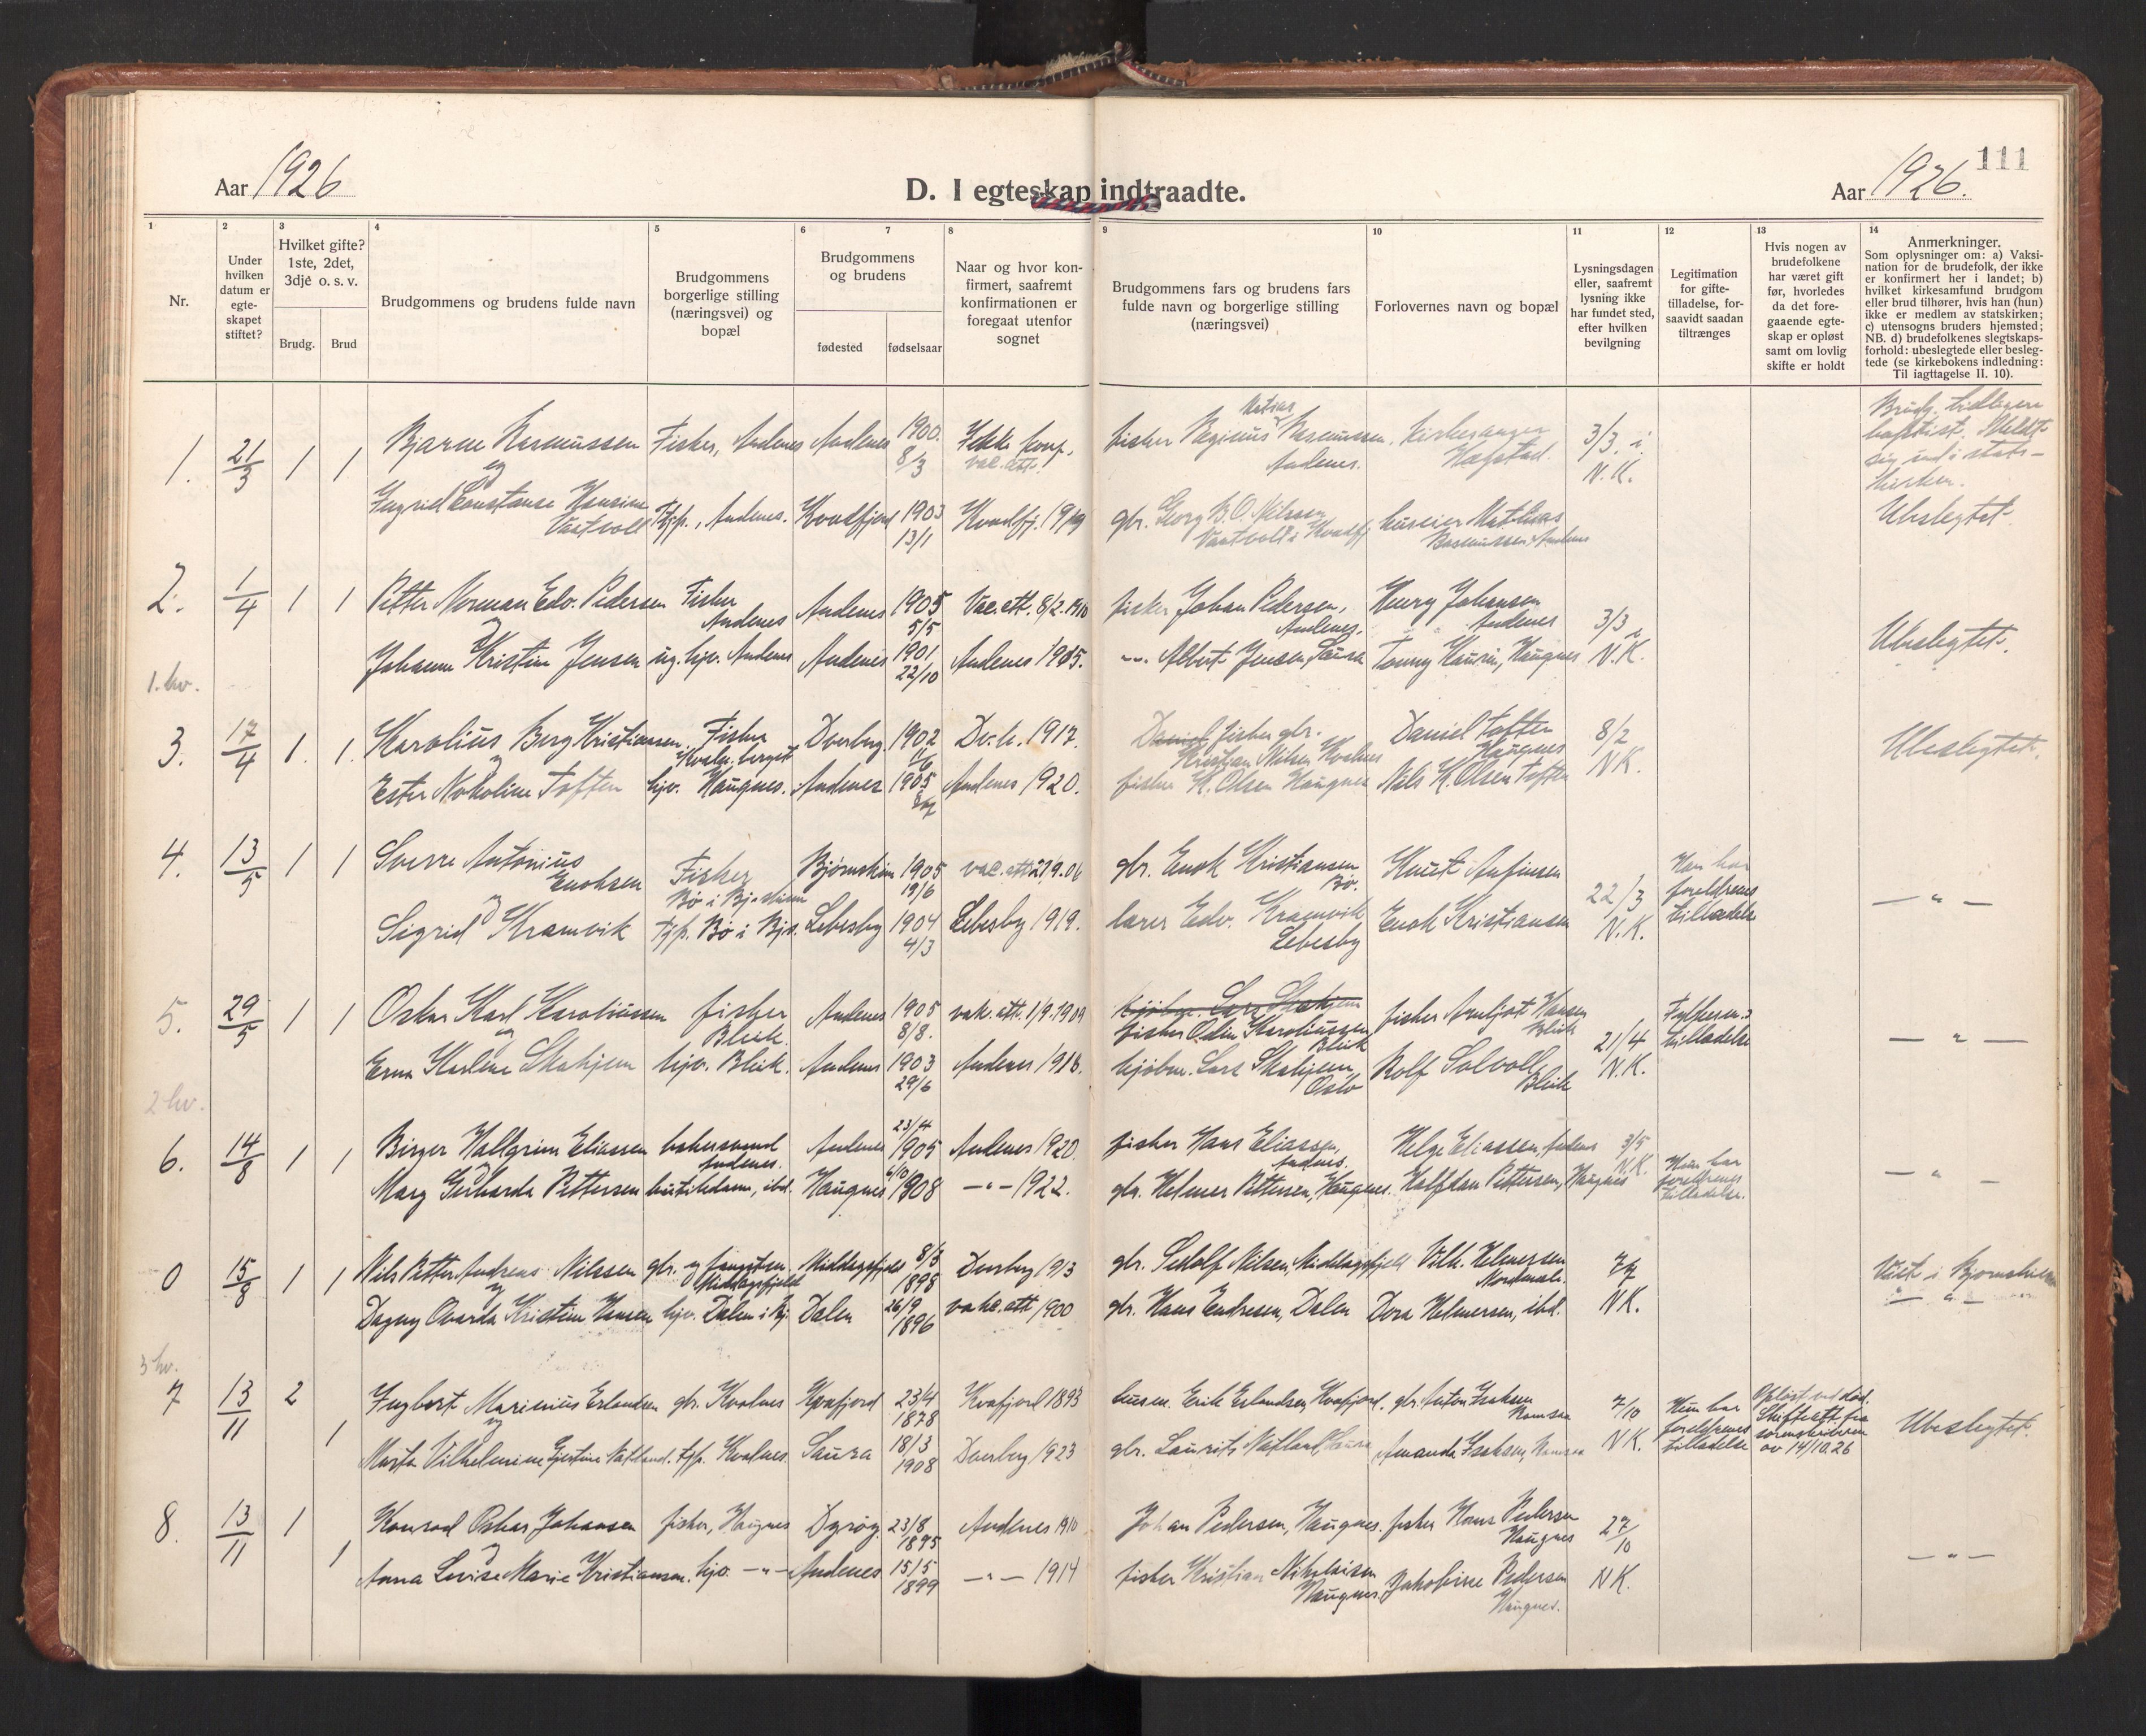 111
Aar 1926
D. I egteskap indtraadte.
Aar 1926.
1 2 3 4 5 6 7 8 9 10 11 12 13 14
Nr.
Under hvilken datum er egte-skapet stiftet?
Hvilket gifte? 1ste, 2det, 3dje o. s. v.
Brudg. Brud
Brudgommens og brudens fulde navn
Brudgommens borgerlige stilling (næringsvei) og bopæl
Brudgommens og brudens
fødested fødselsaar
Naar og hvor kon-firmert, saafremt konfirmationen er foregaat utenfor sognet
Brudgommens fars og brudens fars fulde navn og borgerlige stilling (næringsvei)
Forlovernes navn og bopæl
Lysningsdagen eller, saafremt lysning ikke har fundet sted, efter hvilken bevilgning
Legitimation for gifte-tilladelse, for-saavidt saadan tiltrænges
Hvis nogen av brudefolkene har været gift før, hvorledes da det fore-gaaende egte-skap er opløst samt om lovlig skifte er holdt
Anmerkninger.
Som oplysninger om: a) Vaksi-nation for de brudefolk, der ikke er konfirmert her i landet; b) hvilket kirkesamfund brudgom eller brud tilhører, hvis han (hun) ikke er medlem av statskirken; c) utensogns bruders hjemsted; NB. d) brudefolkenes slegtskaps-forhold: ubeslegtede eller besleg-tede (se kirkebokens indledning: Til iagttagelse II. 10).
1. 21/3 1 1 Bjarne Rasmussen Fisher, Andenes Andenes 1900. 8/3 Ikke konf. vac. att. fisher Rasmussen, Andenes. Kirkesanger Hafstad. 3/3 i N.K. Brudg. tidligere baptist. Meldt sig ind i stats-kirken.
og
Ingrid Constanse Hansine Vastvoll Tjp., Andenes. Kvædfjord 1903 13/1 Kvædfj. 1919 gbr. Georg B. O. Nilssen Mathias Rasmussen Andenes Ubeslegtet
2. 1/4 1 1 Petter Norman Edv. Pedersen Fisher Andenes Andenes 1905 5/5 Vac. att. 8/2. 1910 fisker Johan Pedersen, Andenes. Henry Johansen Andenes 3/3 i N.K.
og
Johanne Kristine Jensen ug. hjv. Andenes Andenes 1901 22/10 Andenes 1915. -"- Albert Jensen, Saura Tonny Haugnes Ubeslegtet.
1. kv.
3. 17/4 1. 1. Karolius Berg Kristiansen. Fisher Dverberg 1902 Dv.k. 1917. Daniel fisher gbr. Kristian Nilsen Kvalnes Daniel Toften Haugnes 8/2 NK. Ubeslegtet.
og
Ester Nokoline Toften hjv. Haugnes. Andenes 1905 Andenes 1920. fisher K. Olsen Haugnes Nils K. Olsen Toften
4. 13/5 1 1 Sverre Antonius Enoksen Fisher Bø i Bjørnskinn Bjørnskinn 1905 19/6 vac. att 27/9.06 gbr. Enok Kristiansen Bø. Knut Anfinsen 22/3 N.K. Han har foreldrenes tilladelse — " —
og
Sigrid Kramvik Tjp. Bø i Bjs. Lebesby 1904 4/3 Lebesby 1919. lærer Edv. Kramvik Lebesby Enok Kristiansen
5. 29/5 1 1 Oskar Karl Karoliussen fisher Bleik. Andenes 1905 8/8. vak. att. 1/9.1909 kjøbm. Lars Skahjem fisher Odin Karoliussen, Bleik fisher Arnljot Hansen Bleik 21/4 N.K. tilladelse — " —
og
Erna Karlene Skahjem hjv. Bleik. Andenes 1903 29/6 Andenes 1918. kjøbm. Lars Skahjem, Oslo Rolf Solvoll Bleik
2 kv.
6. 14/8 1 1 Birger Hallgrim Eliassen bakersvend Andenes. Andenes 23/4 1905 Andenes 1920. fisher Hans Eliassen, Andenes. Helge Eliassen, Andenes 3/5 N.K. Hun har foreldrenes tilladelse. — " —
og
Mary Gerharda Pettersen butikdame, ibd. Haugnes 6/10 1908 — " — 1922. gbr. Helmer Pettersen, Haugnes. Halfdan Pettersen, Haugnes
0 15/8 1 1 Nils Petter Andreas Nilssen gbr. og Middagsfjeld Middagsfjeld 8/3 1898 Dverberg 1913 gbr. Nilsen, Middagsfjeld Vilh. Helmersen Nordmela. 7/7 NK. Viet i Bjørnskinn — " —
og
Dagny Ovarda Kristine Hansen hjv. Dalen i Bj. Dalen 26/9 1896 vakc. att 1900 gbr. Hans Endresen, Dalen Dora Helmersen, ibd.
3 kv.
7 13/11 2 1 Ingbert Marinius Erlandsen gbr. Kvalnes Kvafjord 23/4 1878 Kvafjord 1893 husm. Erik Erlandsen, Kvafjord. gbr. Anton Isaksen Ramsaa 7/10 NK. Hun har foreldrenes tilladelse Opløst ved død. Skifteatt. fra sorenskriveren av 14/10.26 Ubeslegtet.
og
Marta Vilhelmine Gjertine Nøtland. Tjp. Kvalnes. Saura 18/3 1908 Dverberg 1923 gbr. Laurits Nøtland, Saura Amanda Isaksen, Ramsaa
8. 13/11 1 1 Konrad Oskar Johansen fisher, Haugnes Dyrøy. 23/8 1895 Andenes 1910 Johan Pedersen, Haugnes. fisher Hans Pedersen Haugnes 27/10 NK. — " —
og
Anna Lovise Marie Kristiansen. hjv. — " — Andenes 15/5 1899 — " — 1914 fisher Kristian Nikolaisen Haugnes. Jakobine Pedersen Haugnes.